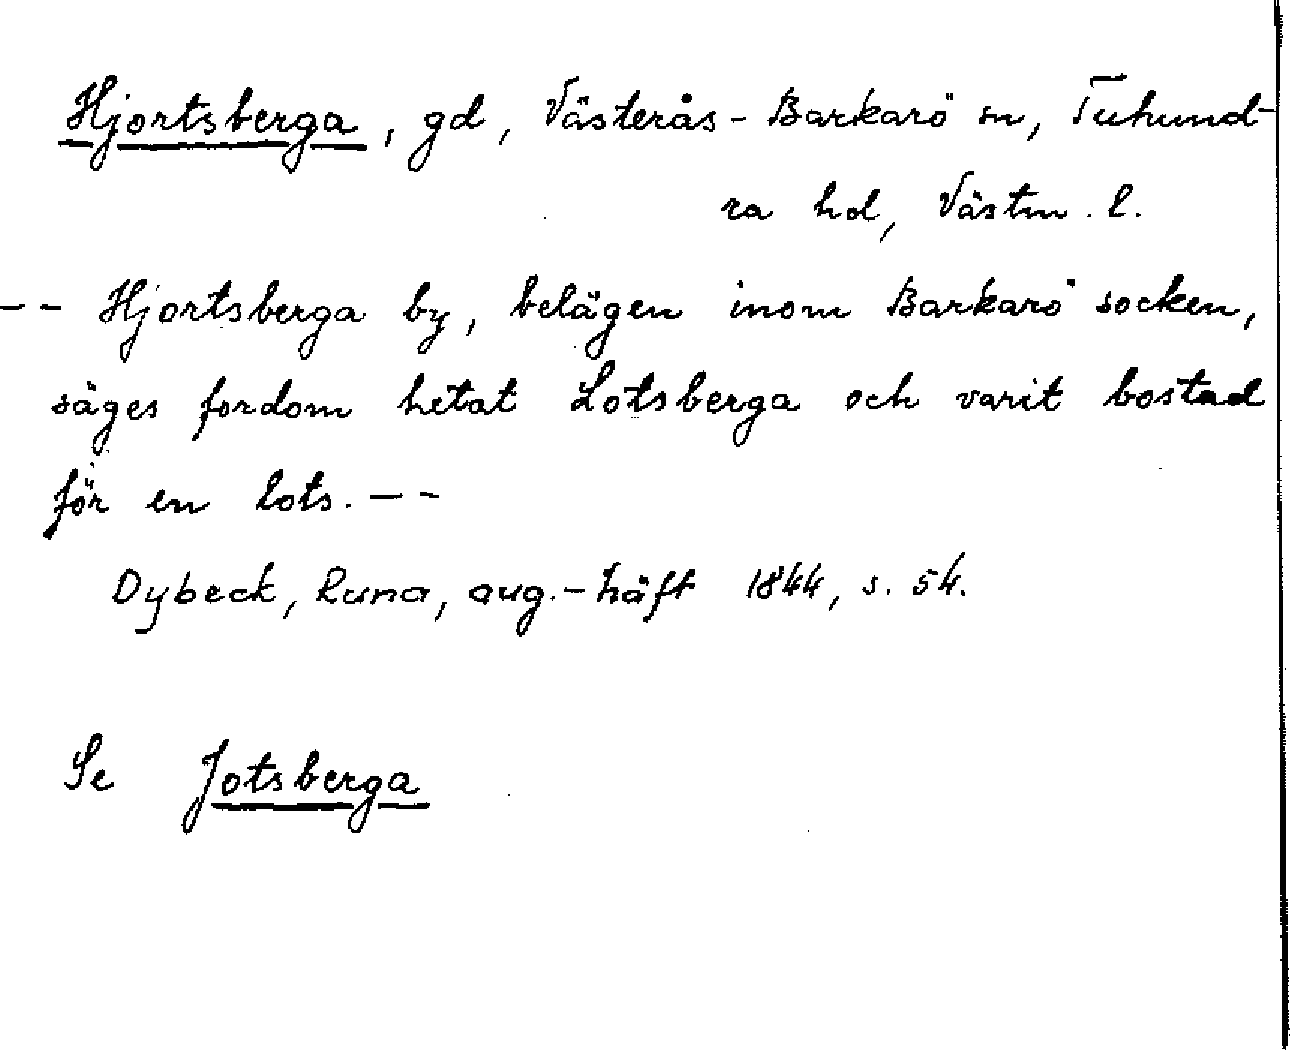 Hjortsberga, gd, Västerås-Barkarö sn, Tuhund-
ra hd, Västm. l.
-- Hjortsberga by, belägen inom Barkarö socken,
säges fordom hetat Lotsberga och varit bostad
för en lots. --
Dybeck, Runa, aug.-häft 1844, s. 54.
Se Jotsberga